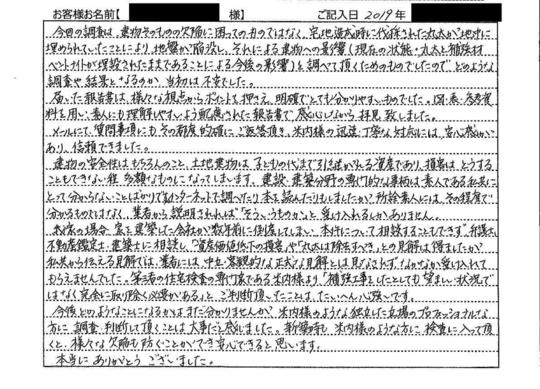 お客様お名前【 様】 ご記入日 2019年
今回の調査は、建物そのものの欠陥に困ってのものではなく、宅地造成時に伐採された丸太が地中に
埋められていたことにより、地盤が陥没し、それによる建物への影響(現在の状態・丸太と補強材
ベントナイトが埋設されたままであることによる今後の影響)を調べて頂くためのものでしたので、どのような
調査や結果となるのか、当初は不安でした。
届いた報告書は、様々な視点からポイントを押さえ、明確でとても分かりやすいものでした。図・表・参考資
料を用い、素人にも理解しやすいよう配慮された報告書で感心しながら拝見致しました。
メールにて、質問事項にもその都度的確にご返答頂き、米内様の迅速・丁寧な対応には、安心感が
あり、信頼できました。
建物の安全性はもちろんのこと、土地建物は子どもの代まで引き継がれる資産であり、損害は、どうする
こともできない程、多額なものになってしまいます。建設・建築分野の専門的な事柄は素人である私共に
とって分からないことばかりで、インターネットで調べたり本を読んだりもしましたが、所詮素人には、その程度で
分かるものではなく、業者から説明されれば「そういうものか」と受け入れるしかありません。
我家の場合、家を建築した会社が数年前に倒産してしまい、本件について相談することもできず、弁護士、
不動産鑑定士、建築士に相談し、「資産価値低下の損害」や「丸太は除去すべき」との見解は得ましたが、
私共から伝える見解では、業者には、中立・客観的な正式な見解とは見なされず、なかなか受け入れて
もらえませんでした。第三者の住宅検査の専門家である米内様より、「補強工事したとしても望ましい状況で
はなく完全に取り除く必要がある」と、ご判断頂いたことは、たいへん心強いです。
今後どのようなことになるかはまだ分かりませんが、米内様のような独立した立場のプロフェッショナルな
方に調査、判断して頂くことは大事だと感じました。新築時も、米内様のような方に検査に入って頂
くと、様々な欠陥も防ぐことができ安心できると思います。
本当にありがとうございました。